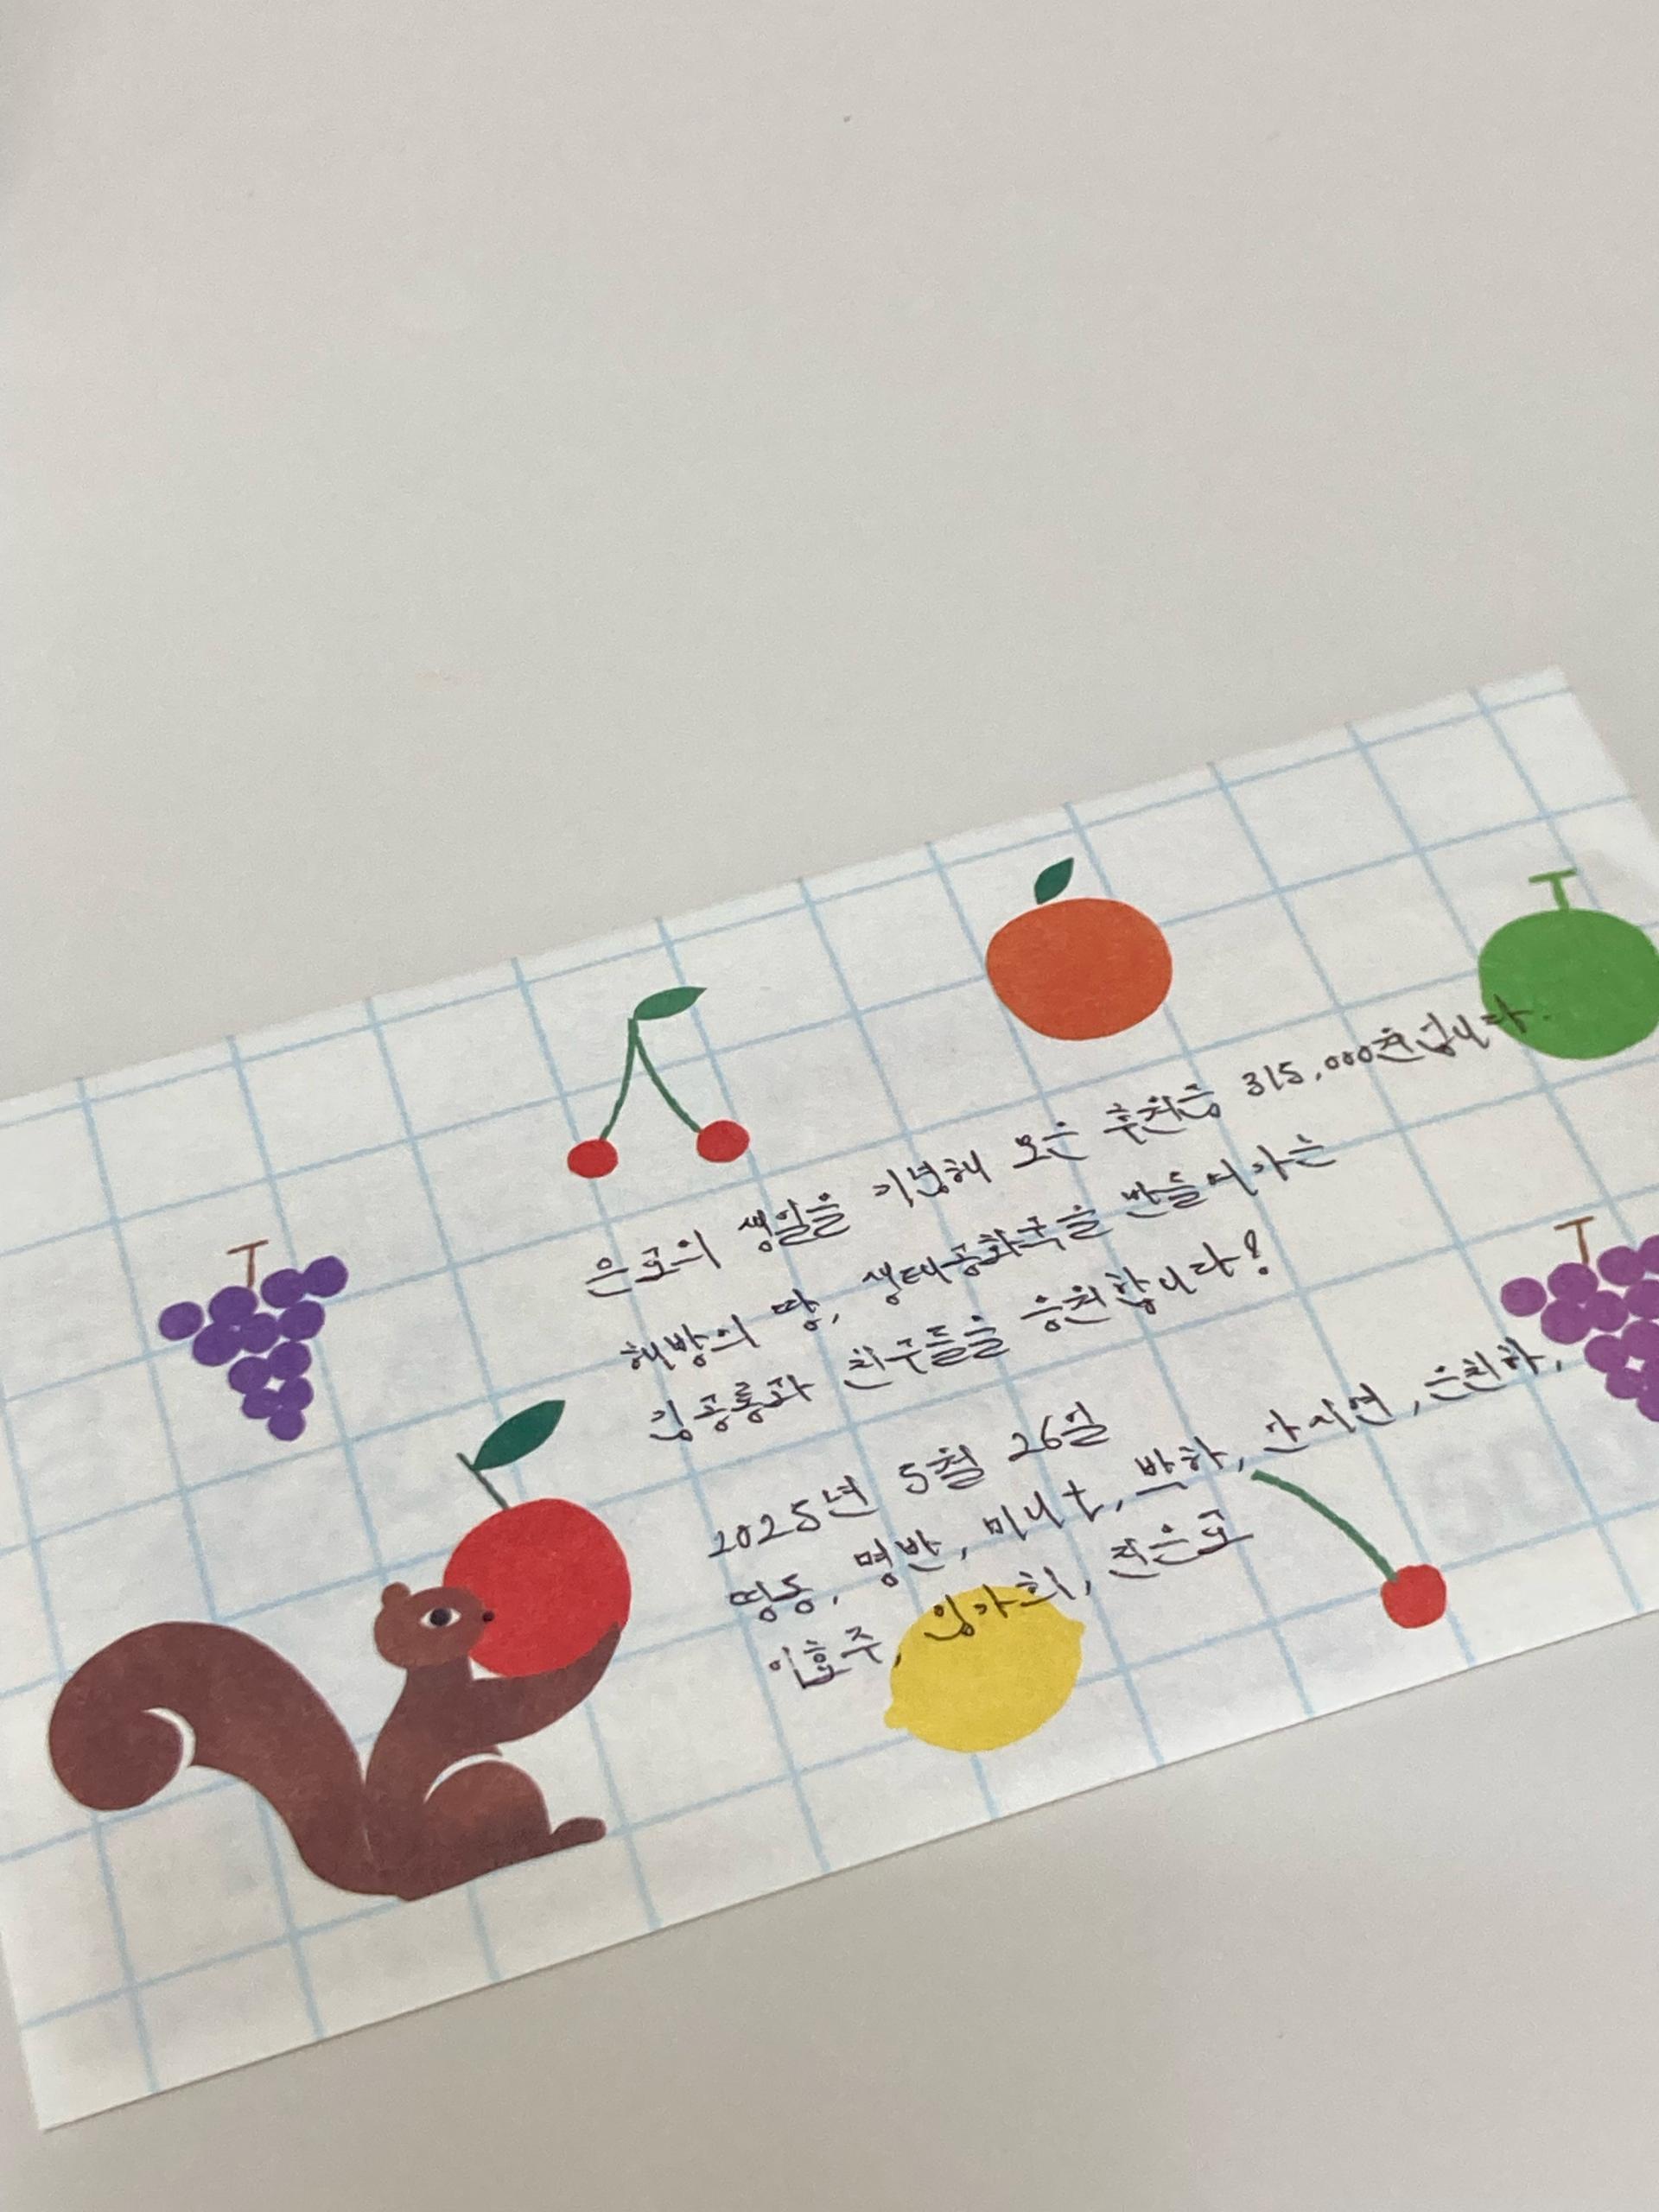 은표의 생일을 기념해 모은 후원금 315,000원입니다.
해방의 땅, 생태공화국을 만들어가는
김공룡과 친구들을 응원합니다!
2025년 5월 26일
띵동, 명반, 미니七, 박하, 안지연, 은천하,
이효주, 임가희, 최은표